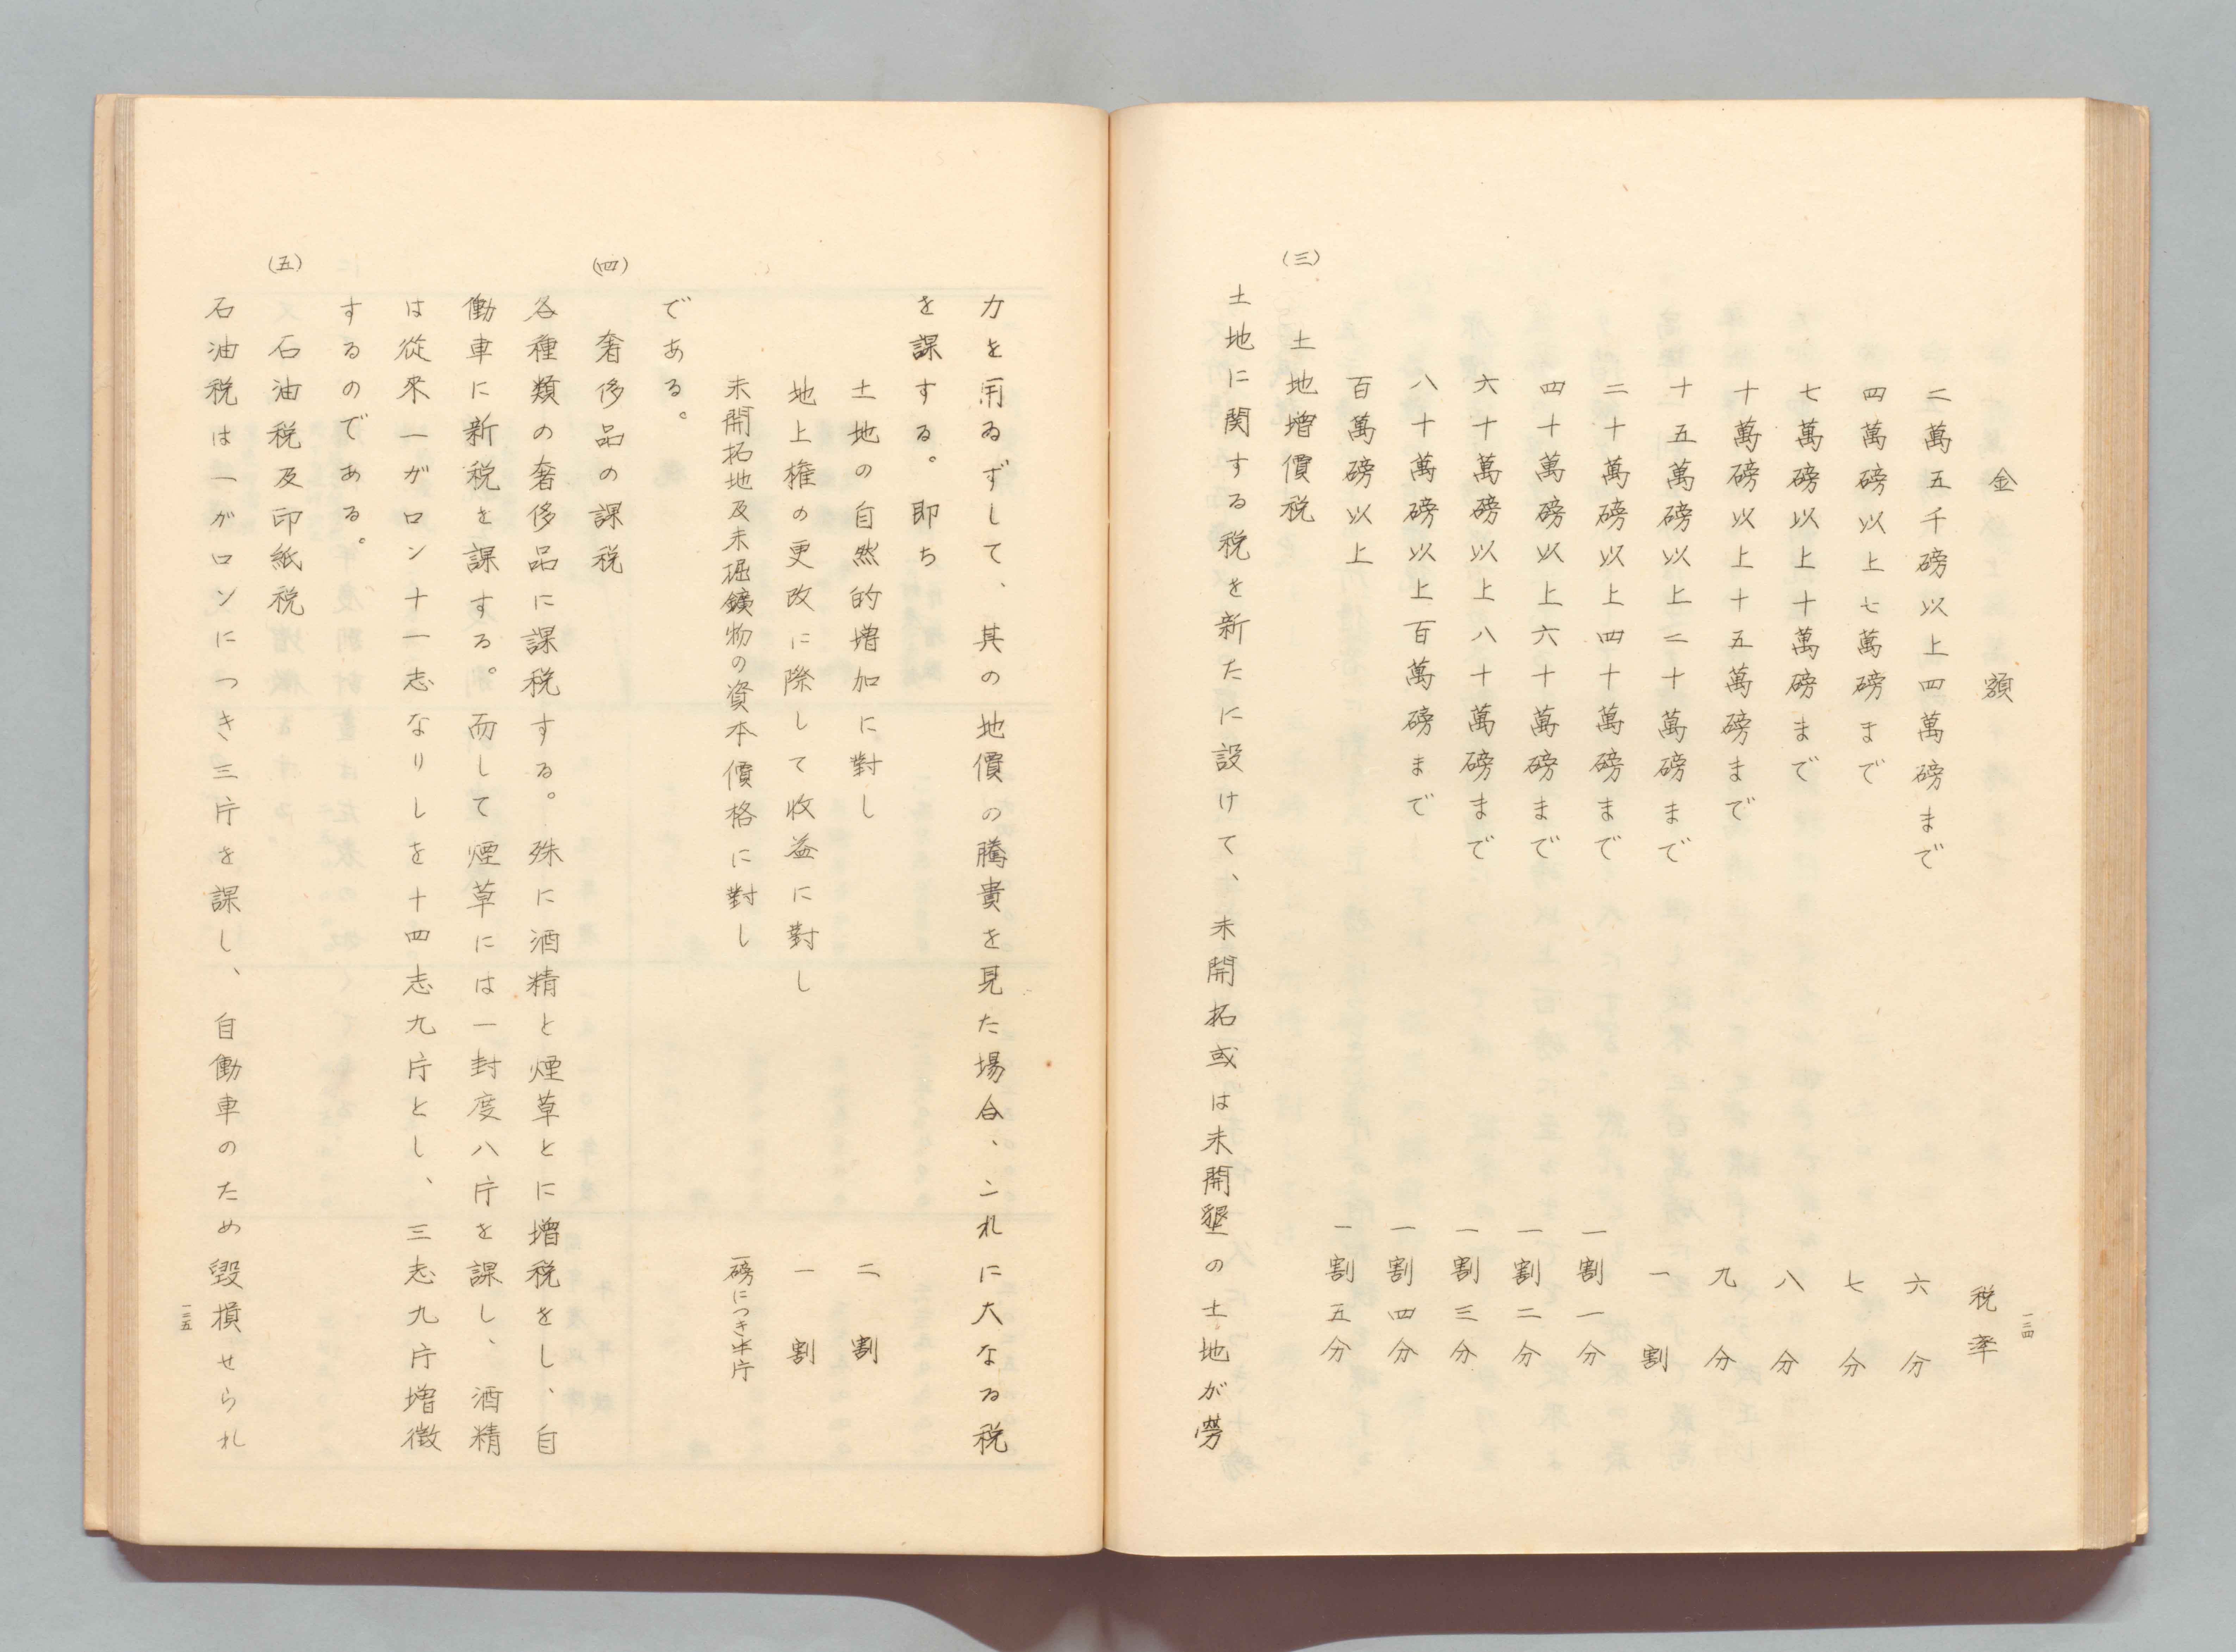 一三四
金額　税率
二萬五千磅以上四萬磅まで　六分
四萬磅以上七萬磅まで　七分
七萬磅以上十萬磅まで　八分
十萬磅以上十五萬磅まで　九分
十五萬磅以上二十萬磅まで　一割
二十萬磅以上四十萬磅まで　一割一分
四十萬磅以上六十萬磅まで　一割二分
六十萬磅以上八十萬磅まで　一割三分
八十萬磅以上百萬磅まで　一割四分
百萬磅以上　一割五分
(三)　土地増價税
土地に関する税を新たに設けて、未開拓或は未開墾の土地が労
力を用ゐずして、其の地價の騰貴を見た場合、これに大なる税
を課する。即ち
土地の自然的増加に對し　二割
地上権の更改に際して收益に對し　一割
未開拓地及未堀鑛物の資本價格に對し　一磅につき半片
である。
(四)　奢侈品の課税
各種類の奢侈品に課税する。殊に酒精と煙草とに増税をし、自
働車に新税を課する。而して煙草には一封度八片を課し、酒精
は從來一ガロン十一志なりしを十四志九片とし、三志九片増徴
するのである。
(五)　石油税及印紙税
石油税は一ガロンにつき三片を課し、自働車のため毀損せられ
一三五